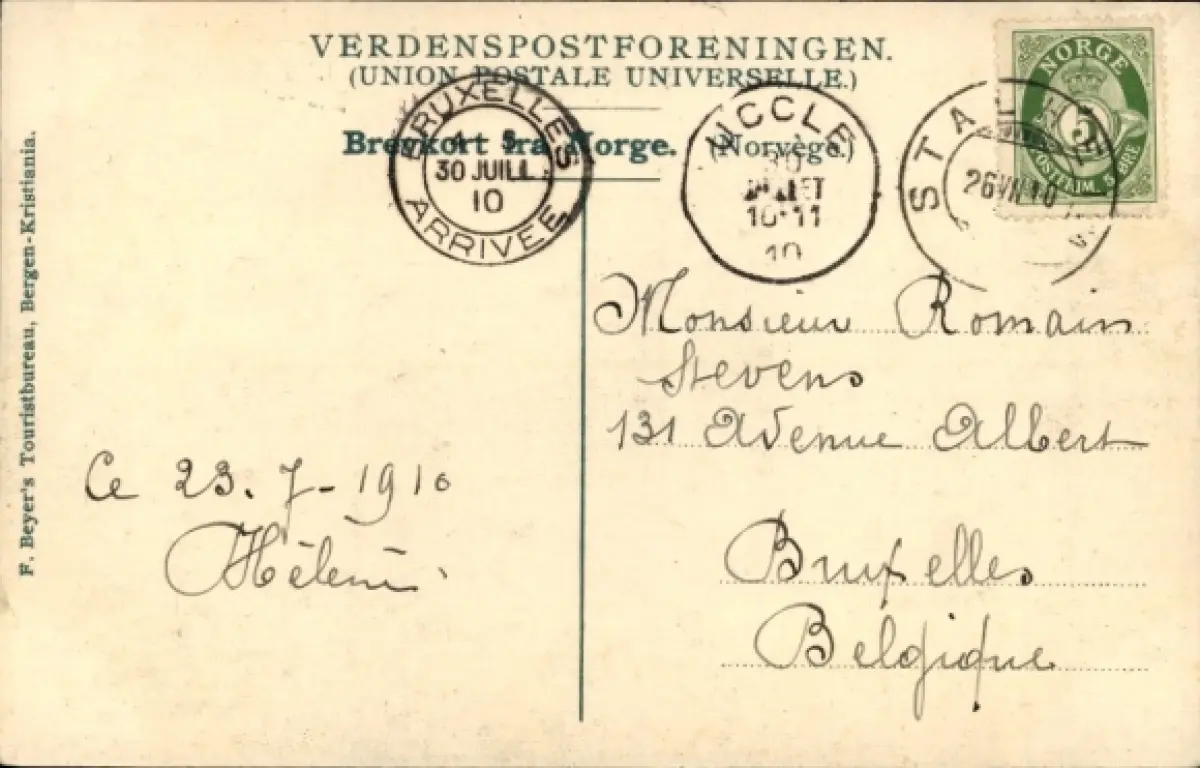 VERDENSPOSTFORENINGEN.
(UNION POSTALE UNIVERSELLE.)
Brevkort fra Norge. (Norvège.)
BRUXELLES
30 JUILL.
10
ARRIVÉE
UCCLE
30
JUILLET
10-11
10
STALHEIM
26 VII 10
NORGE
5
POSTFRIM. 5 ØRE
Monsieur Romain
Stevens
131 Avenue Albert
Bruxelles
Belgique
Ce 23. 7 - 1910
Hélène
F. Beyer's Touristbureau, Bergen-Kristiania.